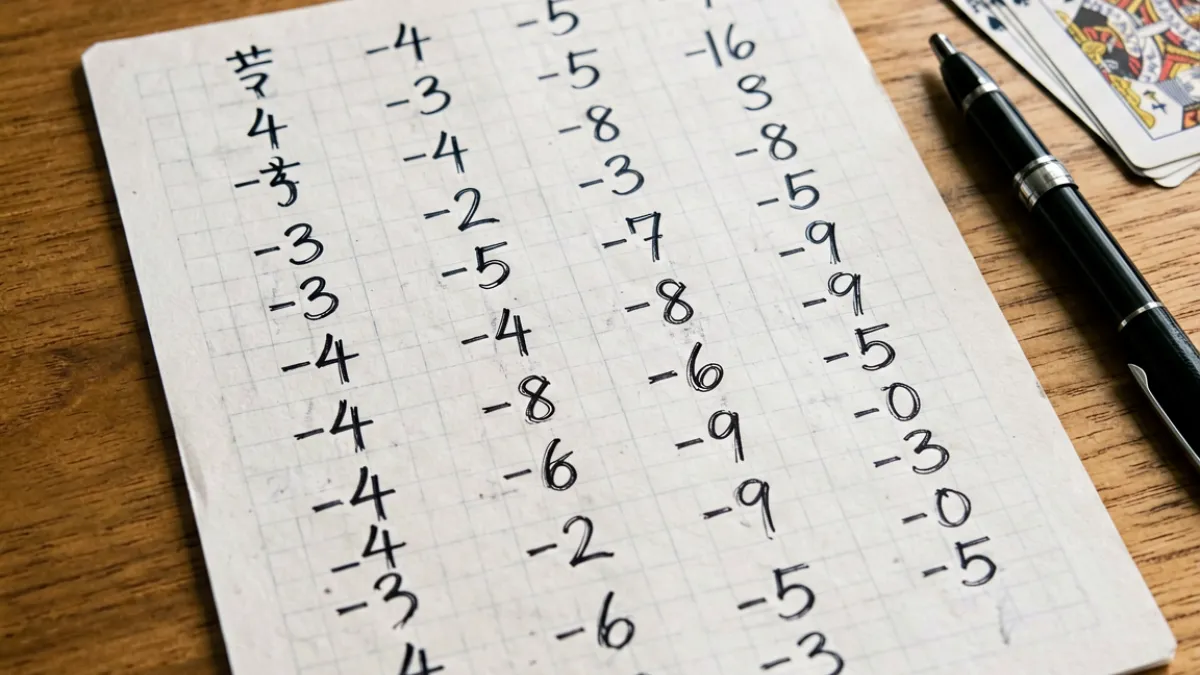 4
-3
-3
-4
-4
-4
-4
-3
4
-4
-3
-4
-2
-5
-4
-8
-6
-2
-6
-5
-5
-8
-3
-7
-8
-6
-9
-9
-5
-3
-16
-8
-5
-9
-9
-5
-0
-3
-0
-5